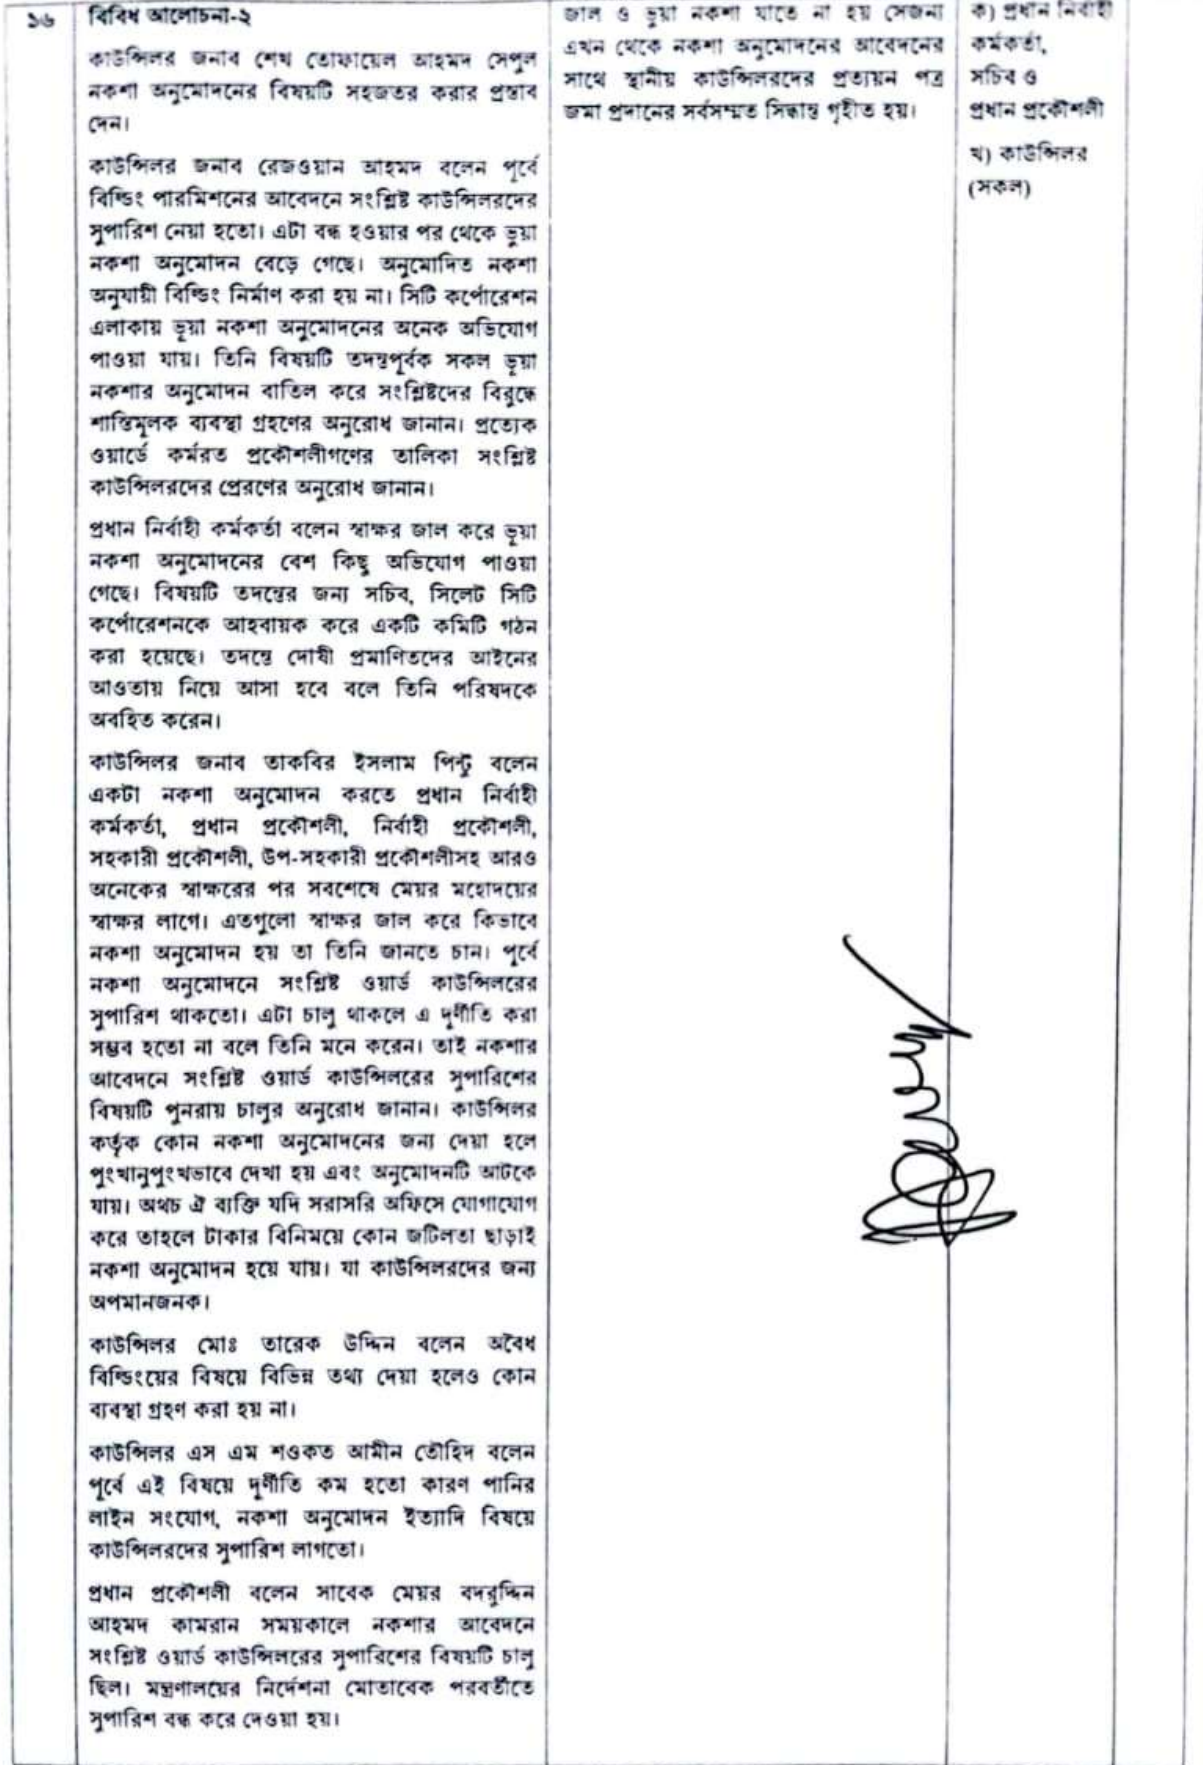 ১৬
বিবিধ আলোচনা-২
কাউন্সিলর জনাব শেখ তোফায়েল আহমদ সেপুল
নকশা অনুমোদনের বিষয়টি সহজতর করার প্রস্তাব
দেন।
কাউন্সিলর জনাব রেজওয়ান আহমদ বলেন পূর্বে
বিল্ডিং পারমিশনের আবেদনে সংশ্লিষ্ট কাউন্সিলরদের
সুপারিশ নেয়া হতো। এটা বন্ধ হওয়ার পর থেকে ভুয়া
নকশা অনুমোদন বেড়ে গেছে। অনুমোদিত নকশা
অনুযায়ী বিল্ডিং নির্মাণ করা হয় না। সিটি কর্পোরেশন
এলাকায় ভূয়া নকশা অনুমোদনের অনেক অভিযোগ
পাওয়া যায়। তিনি বিষয়টি তদন্তপূর্বক সকল ভূয়া
নকশার অনুমোদন বাতিল করে সংশ্লিষ্টদের বিরুদ্ধে
শাস্তিমূলক ব্যবস্থা গ্রহণের অনুরোধ জানান। প্রত্যেক
ওয়ার্ডে কর্মরত প্রকৌশলীগণের তালিকা সংশ্লিষ্ট
কাউন্সিলরদের প্রেরণের অনুরোধ জানান।
প্রধান নির্বাহী কর্মকর্তা বলেন স্বাক্ষর জাল করে ভূয়া
নকশা অনুমোদনের বেশ কিছু অভিযোগ পাওয়া
গেছে। বিষয়টি তদন্তের জন্য সচিব, সিলেট সিটি
কর্পোরেশনকে আহবায়ক করে একটি কমিটি গঠন
করা হয়েছে। তদন্তে দোষী প্রমাণিতদের আইনের
আওতায় নিয়ে আসা হবে বলে তিনি পরিষদকে
অবহিত করেন।
কাউন্সিলর জনাব তাকবির ইসলাম পিন্টু বলেন
একটা নকশা অনুমোদন করতে প্রধান নির্বাহী
কর্মকর্তা, প্রধান প্রকৌশলী, নির্বাহী প্রকৌশলী,
সহকারী প্রকৌশলী, উপ-সহকারী প্রকৌশলীসহ আরও
অনেকের স্বাক্ষরের পর সবশেষে মেয়র মহোদয়ের
স্বাক্ষর লাগে। এতগুলো স্বাক্ষর জাল করে কিভাবে
নকশা অনুমোদন হয় তা তিনি জানতে চান। পূর্বে
নকশা অনুমোদনে সংশ্লিষ্ট ওয়ার্ড কাউন্সিলরের
সুপারিশ থাকতো। এটা চালু থাকলে এ দূর্ণীতি করা
সম্ভব হতো না বলে তিনি মনে করেন। তাই নকশার
আবেদনে সংশ্লিষ্ট ওয়ার্ড কাউন্সিলরের সুপারিশের
বিষয়টি পুনরায় চালুর অনুরোধ জানান। কাউন্সিলর
কর্তৃক কোন নকশা অনুমোদনের জন্য দেয়া হলে
পুংখানুপুংখভাবে দেখা হয় এবং অনুমোদনটি আটকে
যায়। অথচ ঐ ব্যক্তি যদি সরাসরি অফিসে যোগাযোগ
করে তাহলে টাকার বিনিময়ে কোন জটিলতা ছাড়াই
নকশা অনুমোদন হয়ে যায়। যা কাউন্সিলরদের জন্য
অপমানজনক।
কাউন্সিলর মোঃ তারেক উদ্দিন বলেন অবৈধ
বিল্ডিংয়ের বিষয়ে বিভিন্ন তথ্য দেয়া হলেও কোন
ব্যবস্থা গ্রহণ করা হয় না।
কাউন্সিলর এস এম শওকত আমীন তৌহিদ বলেন
পূর্বে এই বিষয়ে দূর্ণীতি কম হতো কারণ পানির
লাইন সংযোগ, নকশা অনুমোদন ইত্যাদি বিষয়ে
কাউন্সিলরদের সুপারিশ লাগতো।
প্রধান প্রকৌশলী বলেন সাবেক মেয়র বদরুদ্দিন
আহমদ কামরান সময়কালে নকশার আবেদনে
সংশ্লিষ্ট ওয়ার্ড কাউন্সিলরের সুপারিশের বিষয়টি চালু
ছিল। মন্ত্রণালয়ের নির্দেশনা মোতাবেক পরবর্তীতে
সুপারিশ বন্ধ করে দেওয়া হয়।
জাল ও ভুয়া নকশা যাতে না হয় সেজন্য
এখন থেকে নকশা অনুমোদনের আবেদনের
সাথে স্থানীয় কাউন্সিলরদের প্রত্যয়ন পত্র
জমা প্রদানের সর্বসম্মত সিদ্ধান্ত গৃহীত হয়।
ক) প্রধান নির্বাহী
কর্মকর্তা,
সচিব ও
প্রধান প্রকৌশলী
খ) কাউন্সিলর
(সকল)